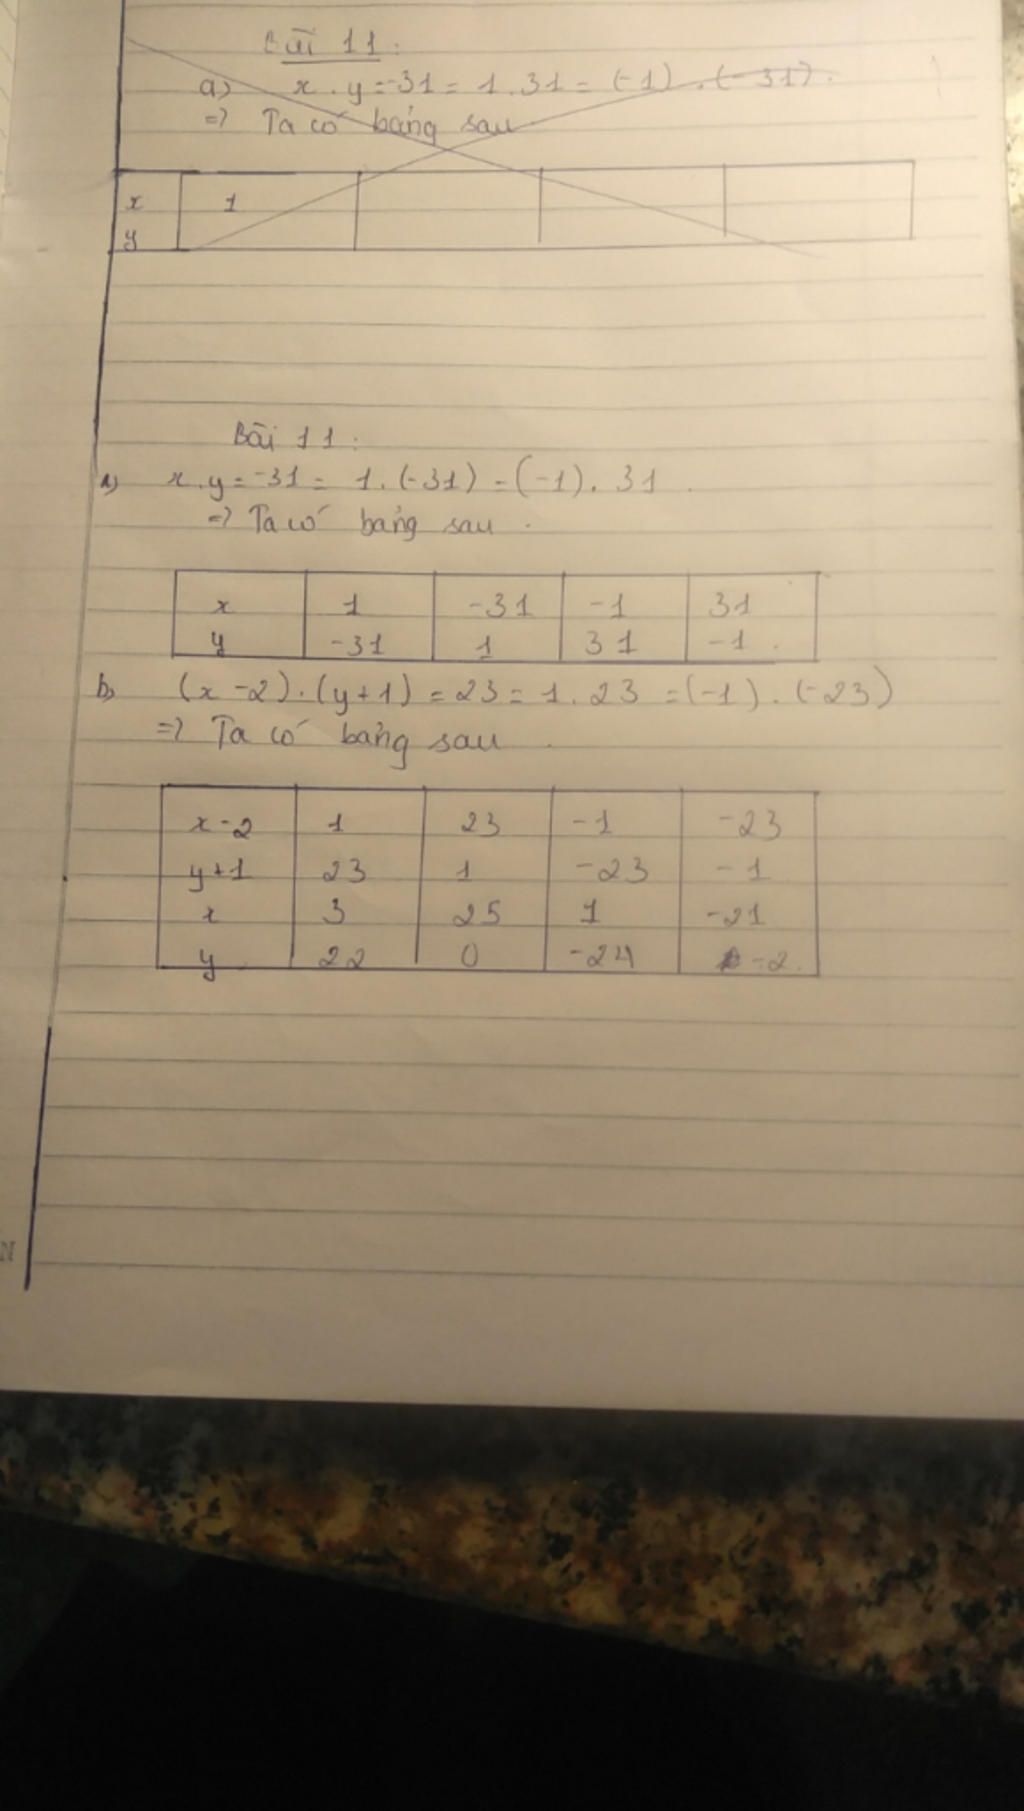 Bài 11:
a) x.y=-31 = 1.31 = (-1).(-31).
=> Ta có bảng sau
x 1
y
Bài 11:
a) x.y = -31 = 1.(-31) = (-1).31.
=> Ta có bảng sau.
x 1 -31 -1 31
y -31 1 31 -1.
b) (x-2).(y+1) = 23 = 1.23 = (-1).(-23)
=> Ta có bảng sau.
x-2 1 23 -1 -23
y+1 23 1 -23 -1
x 3 25 1 -21
y 22 0 -24 -2.
N